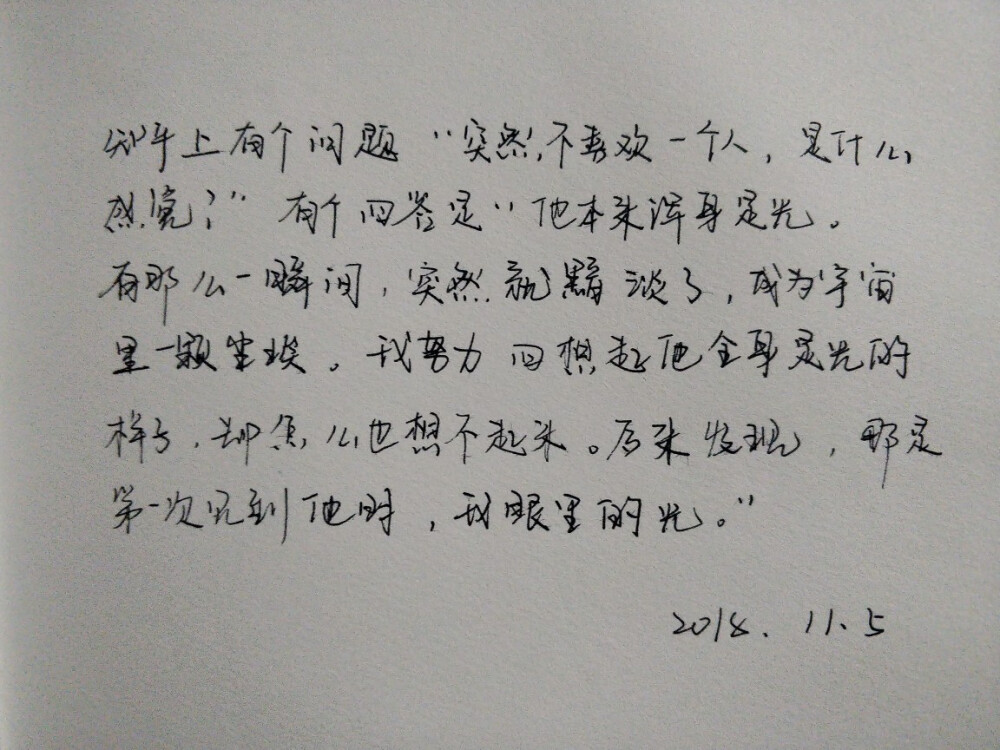 知乎上有个问题“突然不喜欢一个人，是什么
感觉？”有个回答是“他本来浑身是光。
有那么一瞬间，突然就黯淡了，成为宇宙
里一颗尘埃。我努力回想起他全身是光的
样子，却怎么也想不起来。后来发现，那是
第一次见到他时，我眼里的光。”
2018.11.5